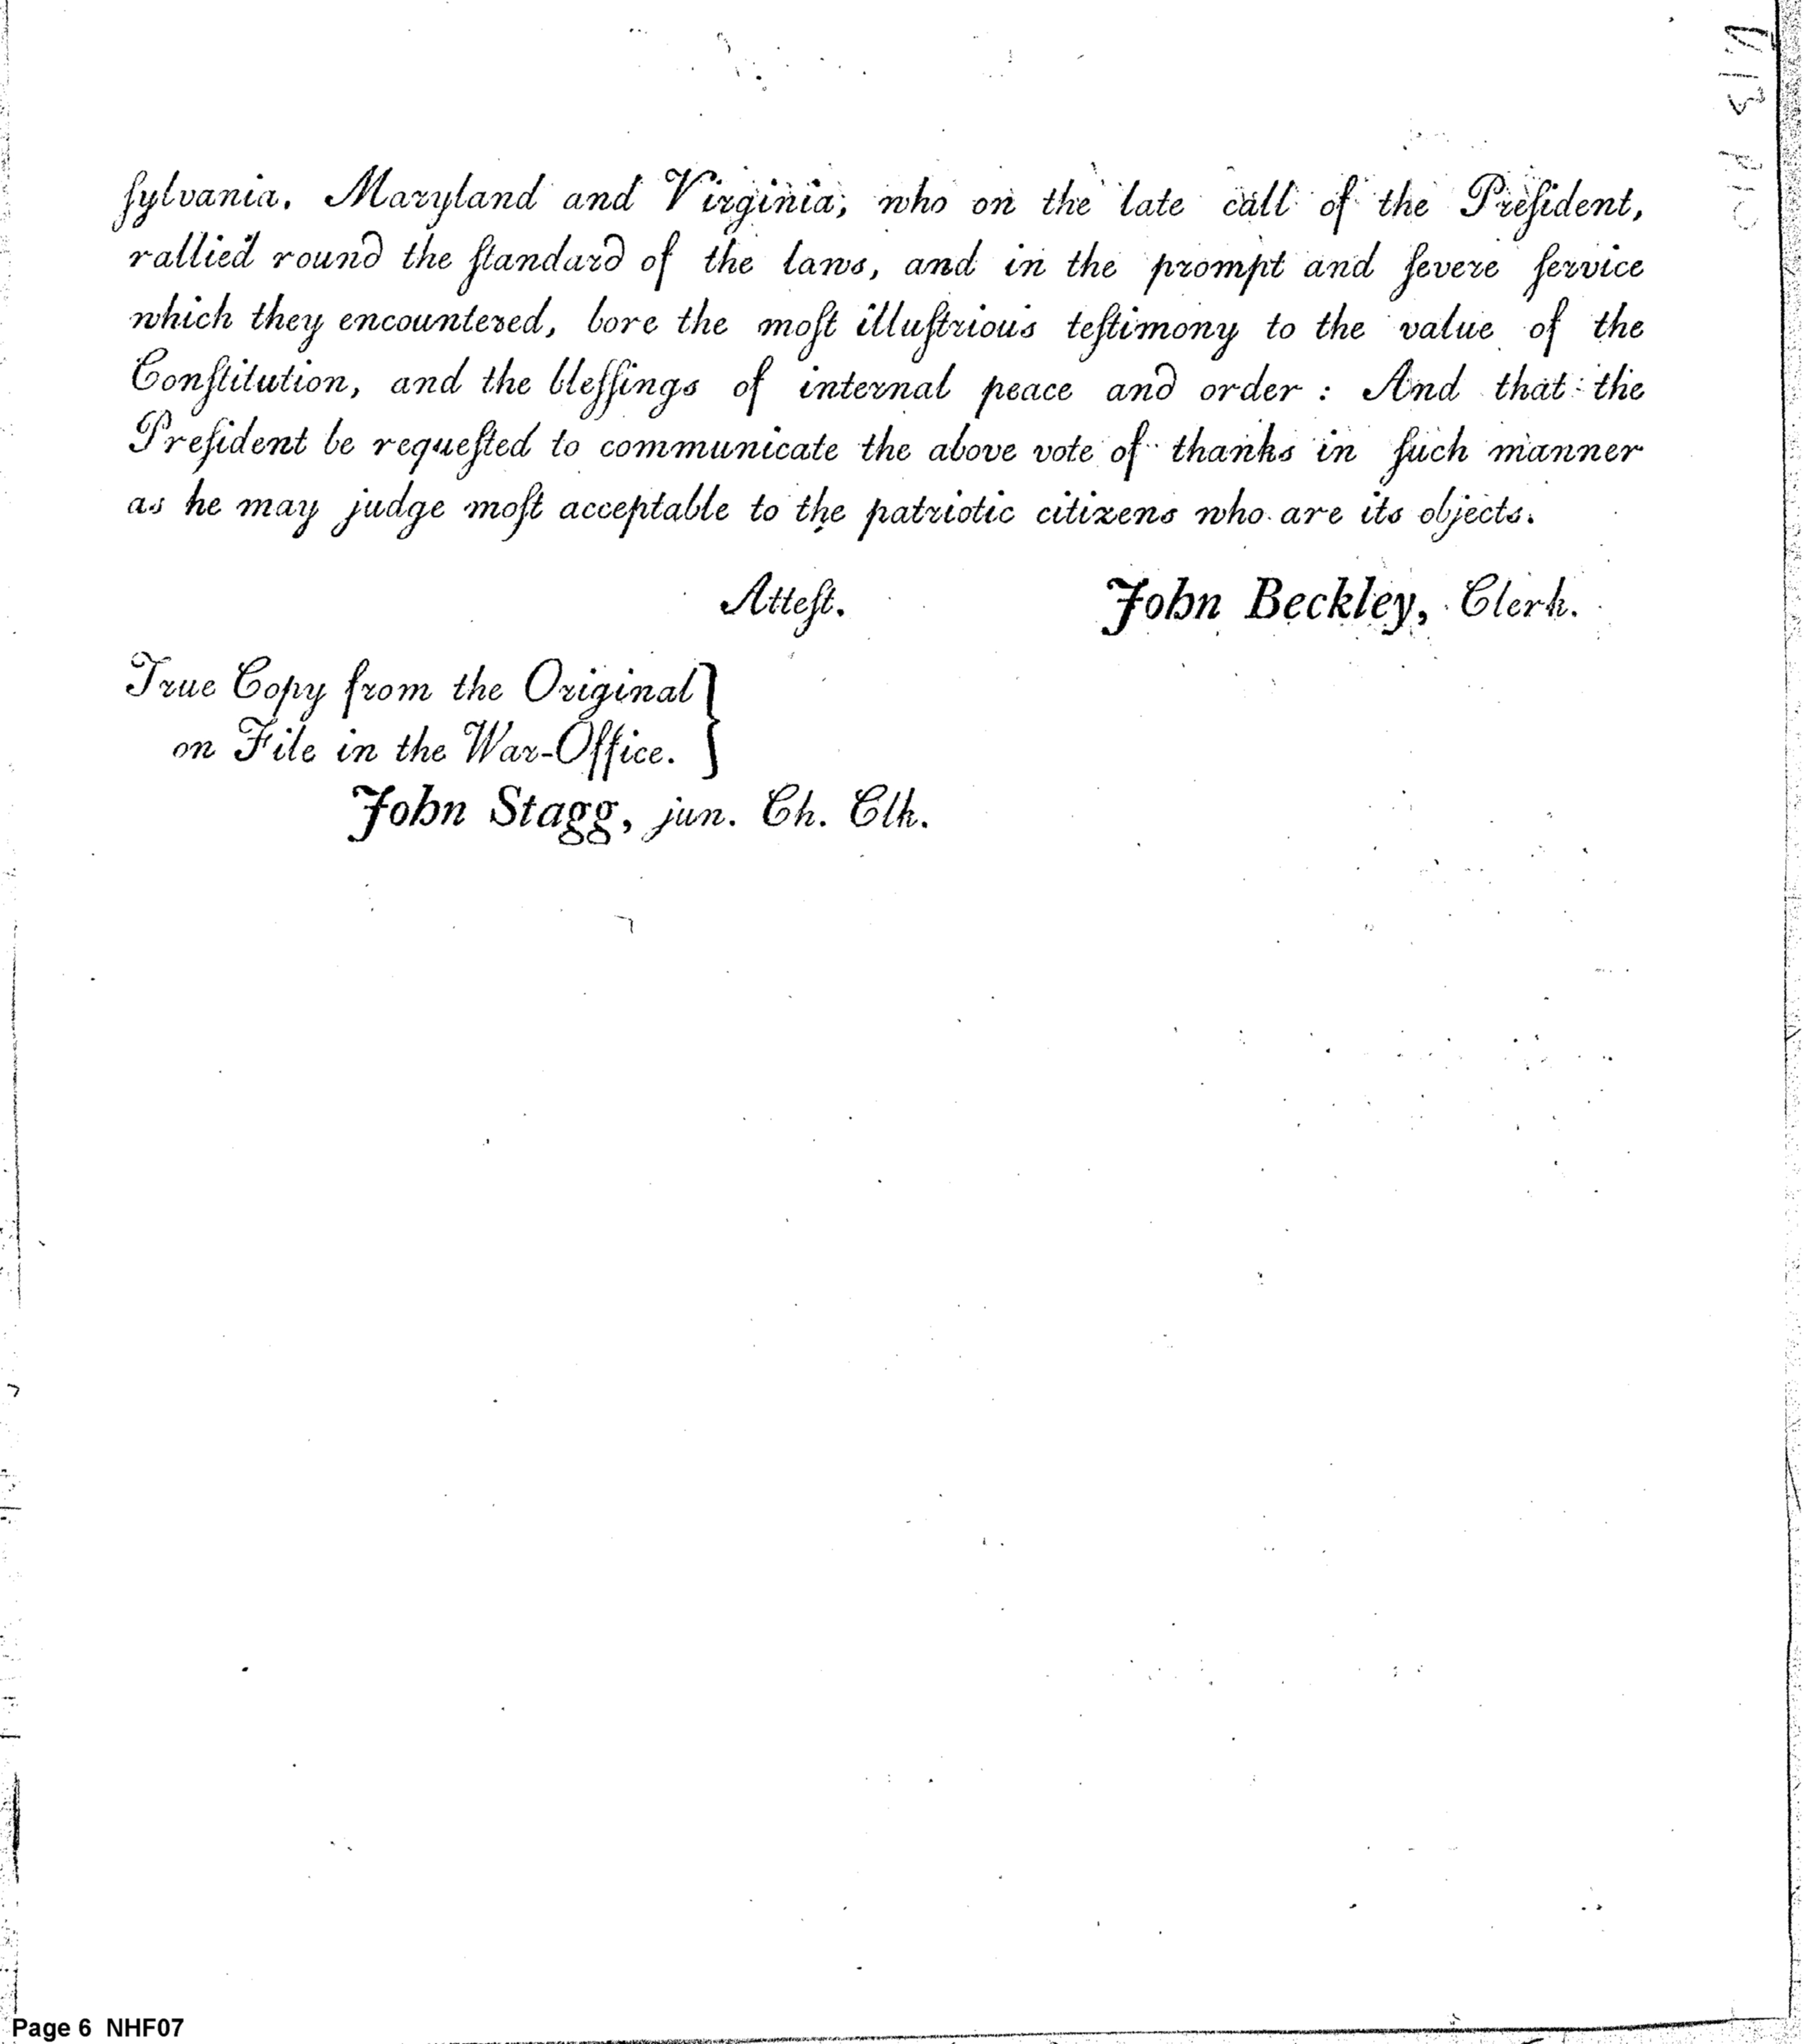 ſylvania, Maryland and Virginia, who on the late call of the Preſident,
rallied round the ſtandard of the laws, and in the prompt and ſevere ſervice
which they encountered, bore the moſt illuſtrious teſtimony to the value of the
Conſtitution, and the bleſſings of internal peace and order : And that the
Preſident be requeſted to communicate the above vote of thanks in ſuch manner
as he may judge moſt acceptable to the patriotic citizens who are its objects.
Atteſt. John Beckley, Clerk.
True Copy from the Original
on File in the War-Office. }
John Stagg, jun. Ch. Clk.
Page 6 NHF07